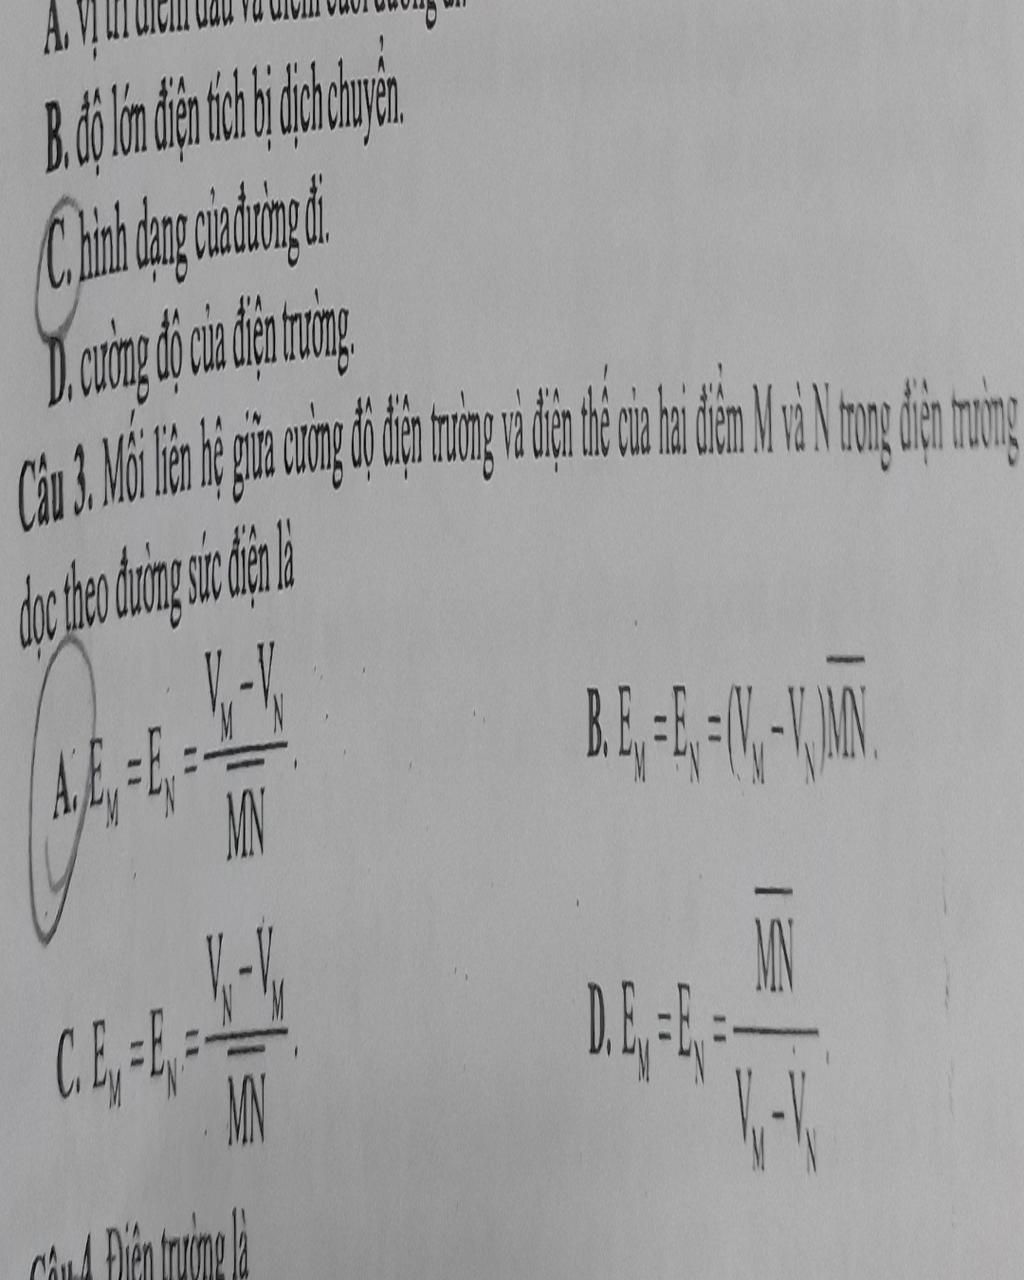 A. vị trí điểm đầu và điểm cuối đường đi.
B. độ lớn điện tích bị dịch chuyển.
C. hình dạng của đường đi.
D. cường độ của điện trường.
Câu 3. Mối liên hệ giữa cường độ điện trường và điện thế của hai điểm M và N trong điện trường
dọc theo đường sức điện là
A. E_M = E_N = \frac{V_M - V_N}{\overline{MN}}. B. E_M = E_N = (V_M - V_N)\overline{MN}.
C. E_M = E_N = \frac{V_N - V_M}{\overline{MN}}. D. E_M = E_N = \frac{\overline{MN}}{V_M - V_N}.
Câu 4. Điện trường là